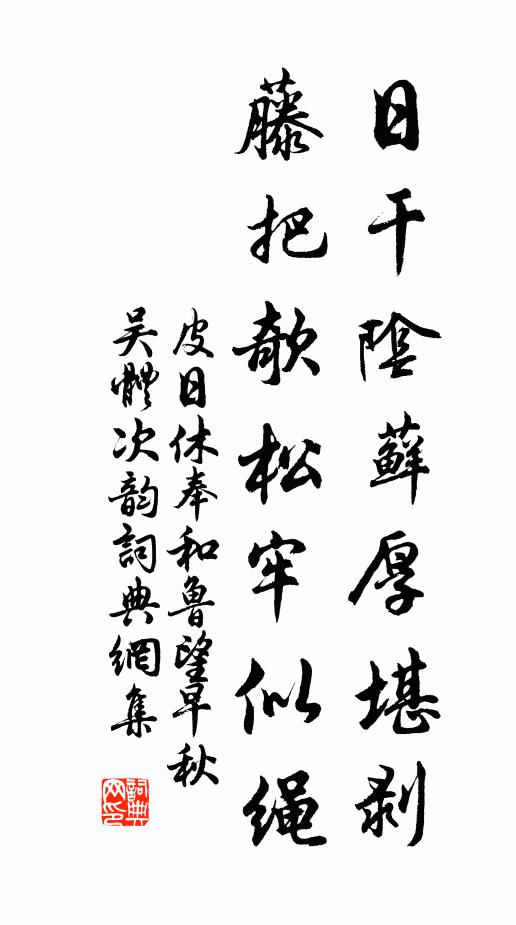 日干陰蘚厚堪剥
藤把欹松牢似绳
皮日休奉和鲁望早秋
吴體次韵詞典網集
詞典网印